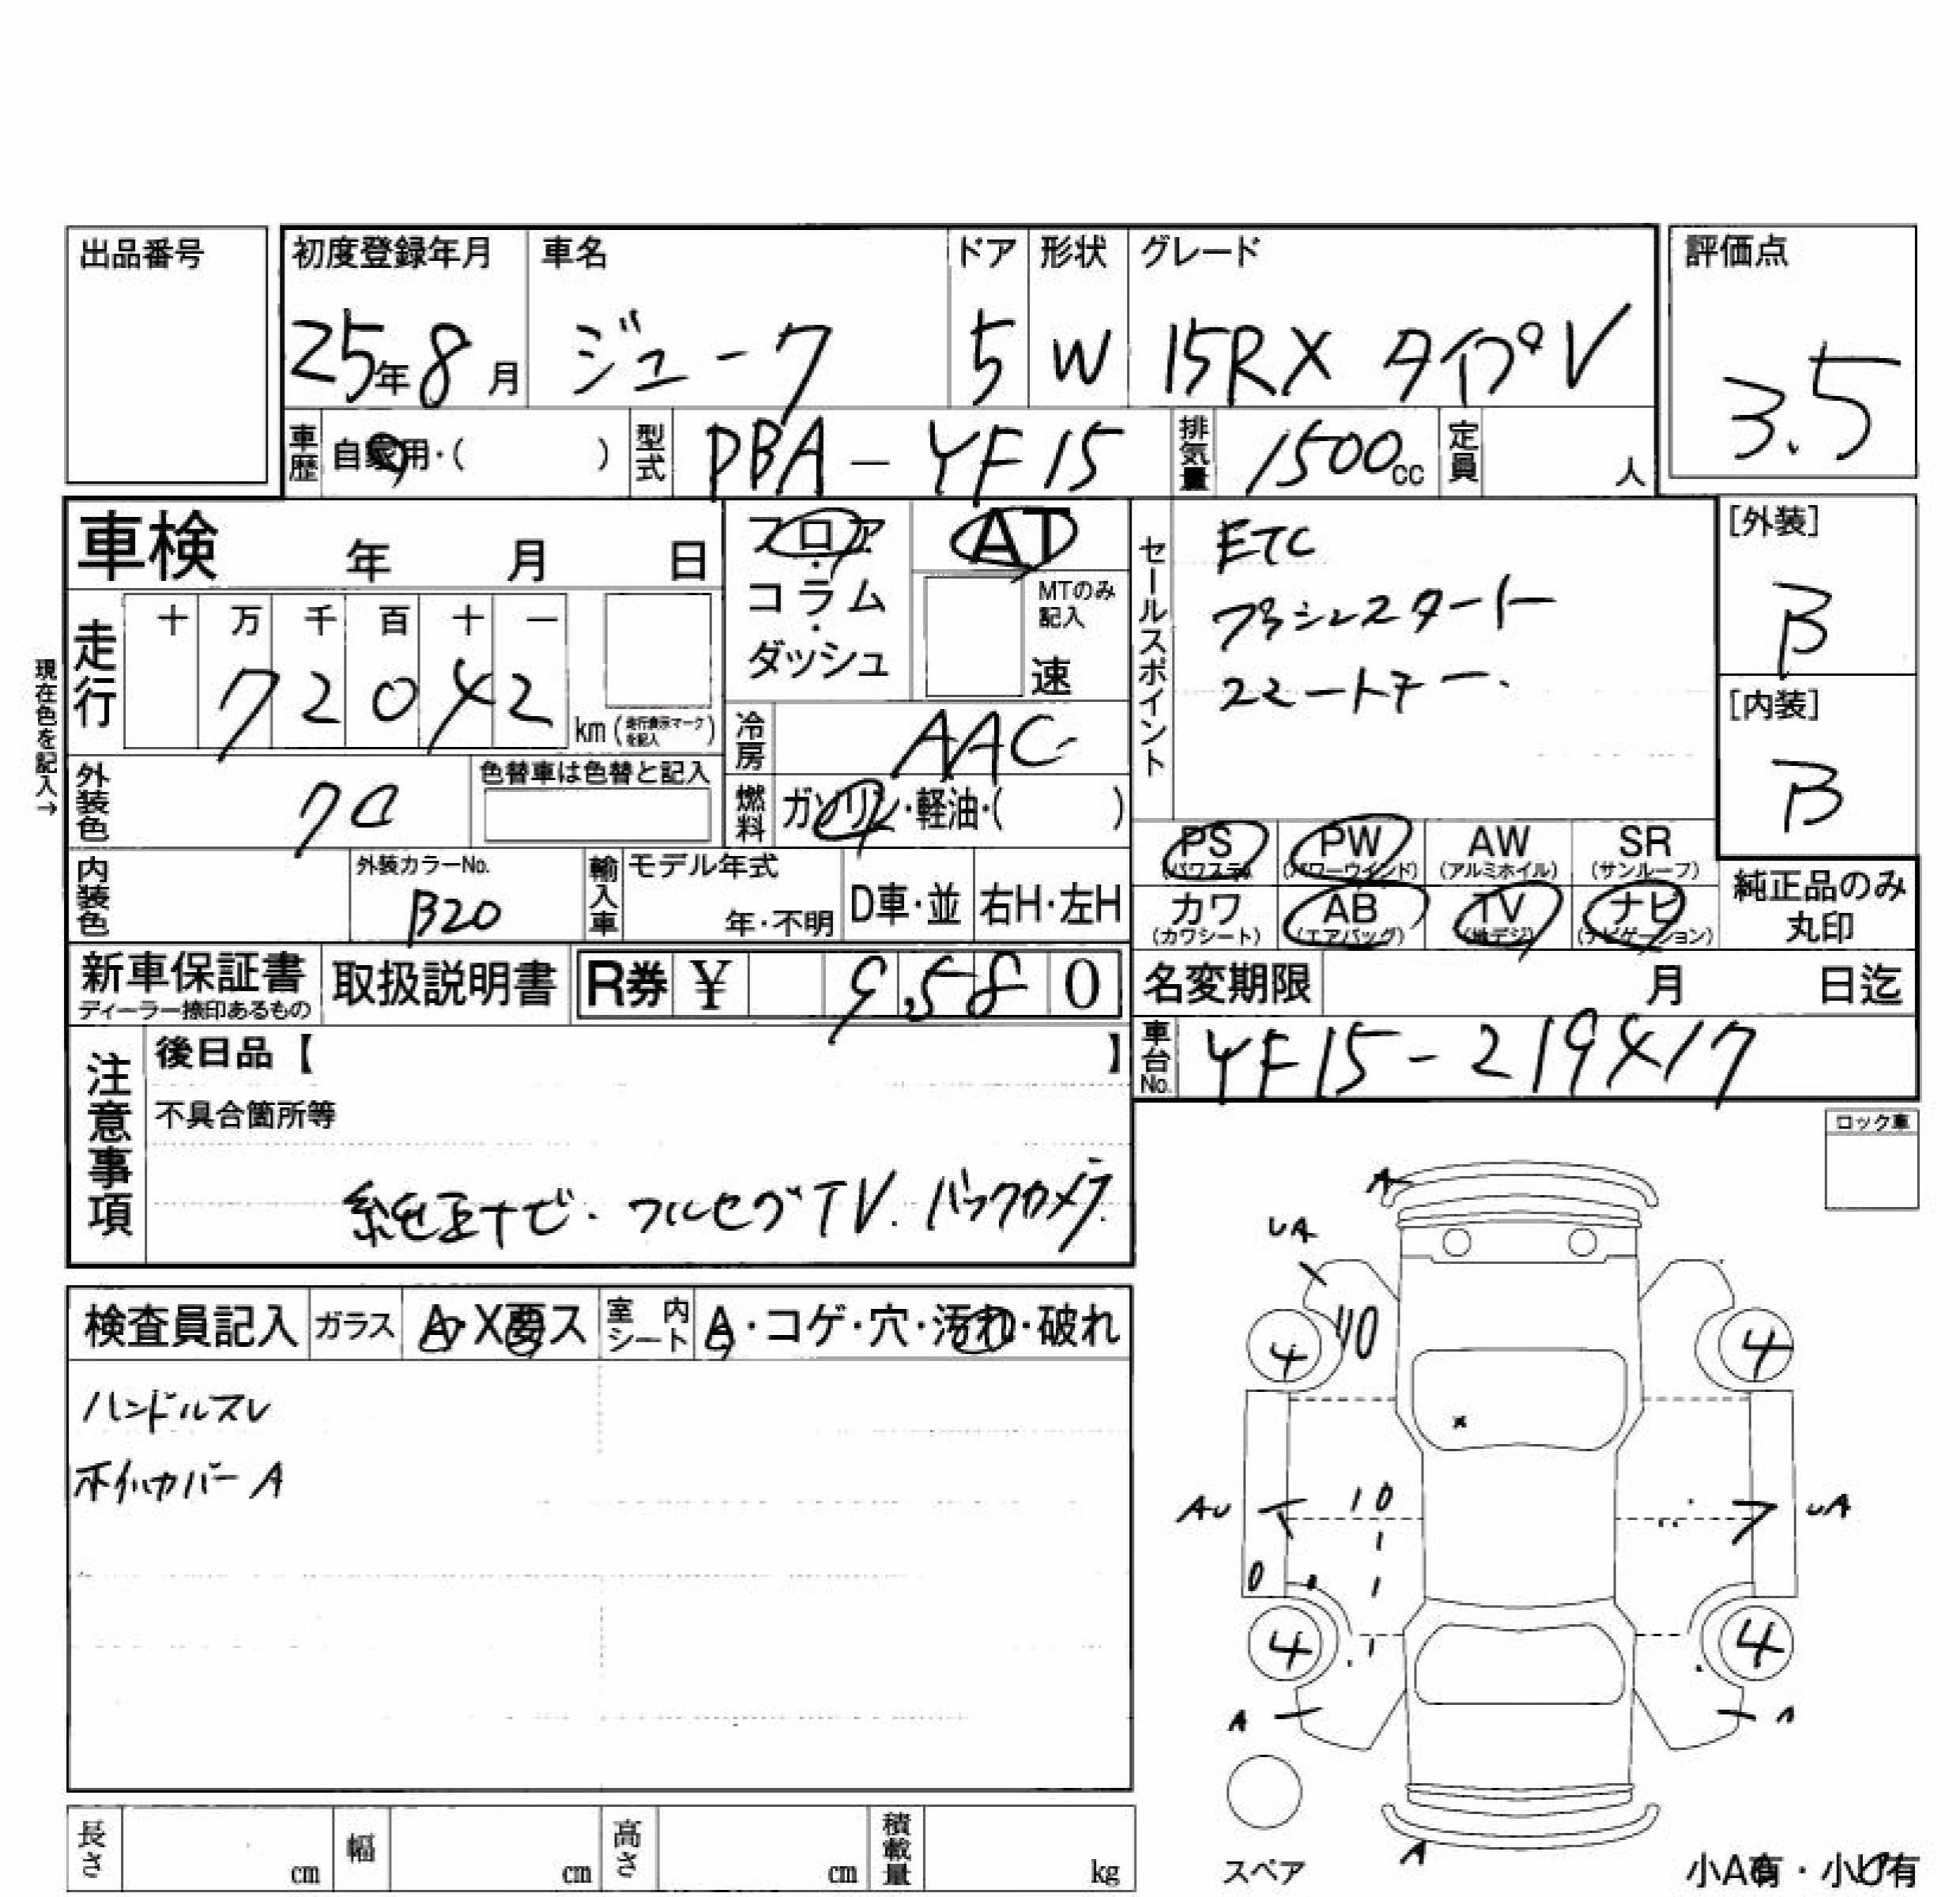 出品番号
初度登録年月 車名 ドア 形状 グレード 評価点
25年8月 ジューク 5 W 15RX タイプV 3.5
車歴 自家用・( ) 型式 PBA-YF15 排気量 1500cc 定員 人
車検 年 月 日
フロア・コラム・ダッシュ
AT
MTのみ記入
速
セールスポイント
ETC
プッシュスタート
スマートキー
[外装]
B
[内装]
B
現在色を記入→
走行 十 万 千 百 十 一
72042 km (走行表示マークを記入)
冷房 AAC
外装色 クロ 色替車は色替と記入
燃料 ガソリン・軽油・( )
内装色 外装カラーNo. B20
輸入車 モデル年式 年・不明 D車・並 右H・左H
PS (パワステ) PW (パワーウインド) AW (アルミホイル) SR (サンルーフ)
カワ (カワシート) AB (エアバッグ) TV (地デジ) ナビ (ナビゲーション)
純正品のみ丸印
新車保証書 ディーラー捺印あるもの 取扱説明書 R券 ¥ 9,580
名変期限 月 日迄
車台No. YF15-219417
注意事項
後日品【 】
不具合箇所等
純正ナビ・フルセグTV.バックカメラ
ロック車
検査員記入 ガラス A・X要ス 室内シート A・コゲ・穴・汚れ・破れ
ハンドルスレ
ホイルカバーA
A
UA
4 4
AU UA
4 4
A
A
スペア
小A有・小U有
長さ cm 幅 cm 高さ cm 積載量 kg